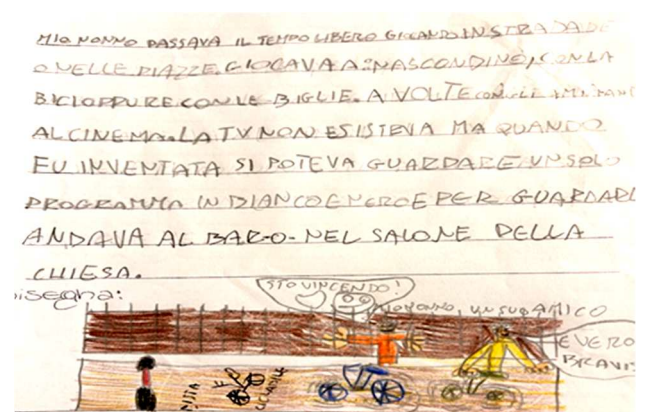 MIO NONNO PASSAVA IL TEMPO LIBERO GIOCANDO IN STRADA
O NELLE PIAZZE. GIOCAVA A: NASCONDINO, CON LA
BICI OPPURE CON LE BIGLIE. A VOLTE CON GLI
AL CINEMA. LA TV NON ESISTEVA MA QUANDO
FU INVENTATA SI POTEVA GUARDARE UN SOLO
PROGRAMMA IN BIANCO E NERO E PER GUARDARL
ANDAVA AL BAR O NEL SALONE DELLA
CHIESA.
isegna:
STO VINCENDO!
MIO NONNO, UN SUO AMICO
E VERO
BRAVI